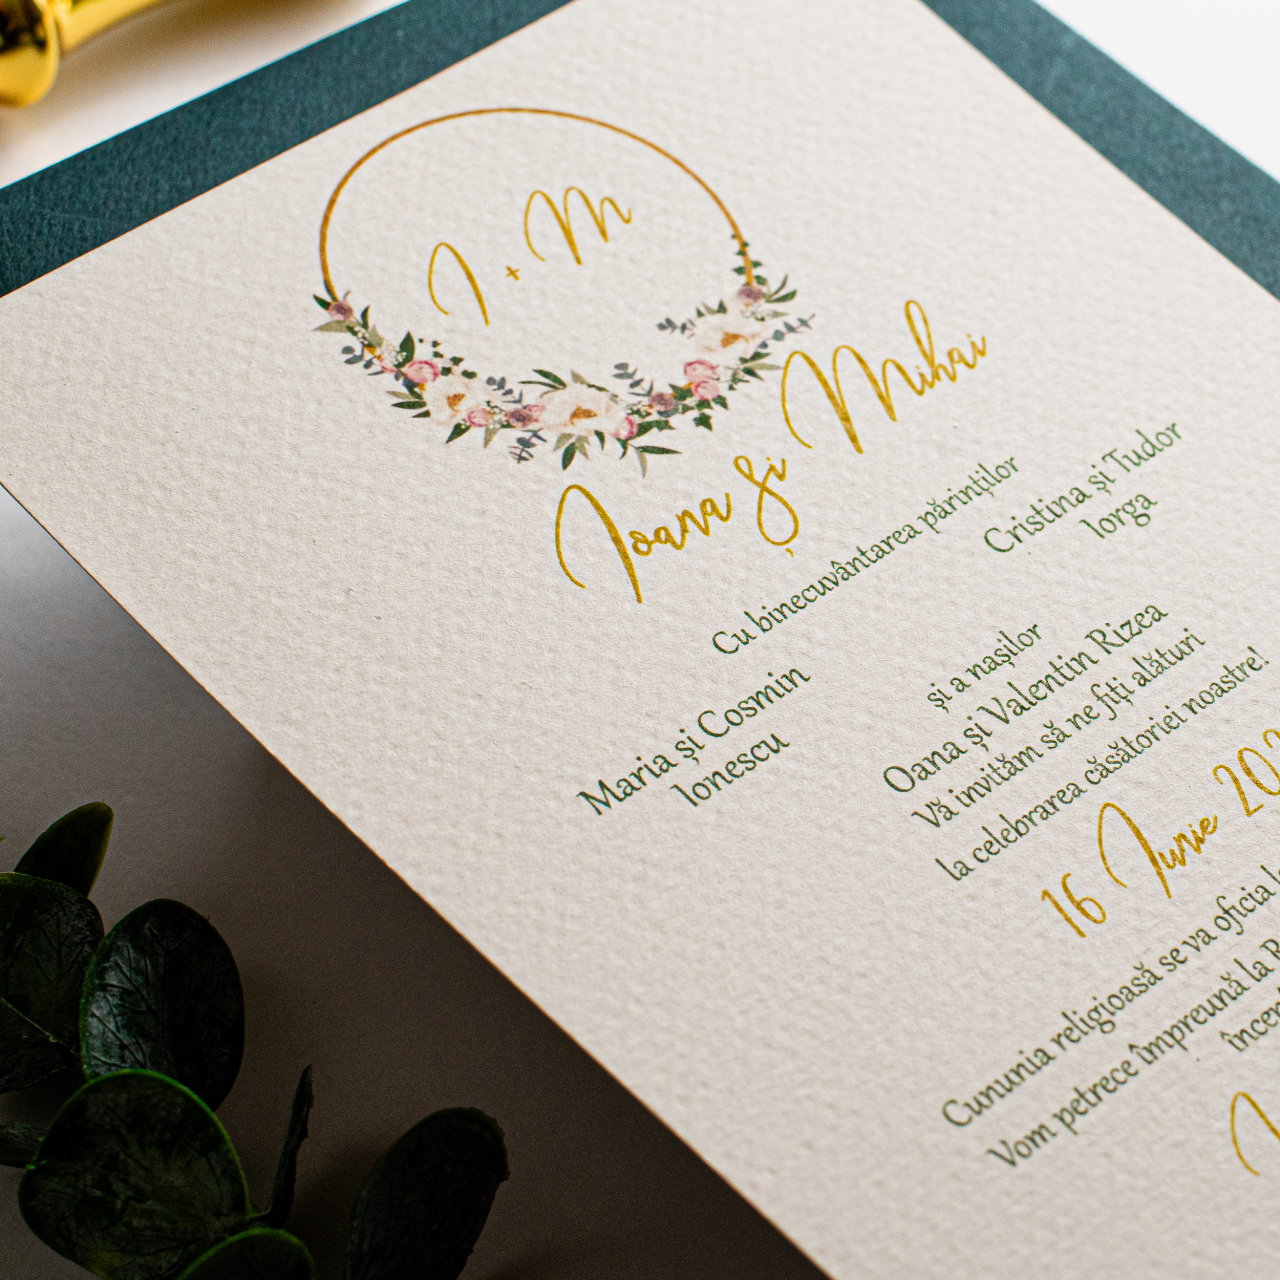 I + M
Ioana și Mihai
Cu binecuvântarea părinților
Maria și Cosmin
Ionescu
Cristina și Tudor
Iorga
și a nașilor
Oana și Valentin Rizea
Vă invităm să ne fiți alături
la celebrarea căsătoriei noastre!
16 Iunie
Cununia religioasă se va oficia
Vom petrece împreună la